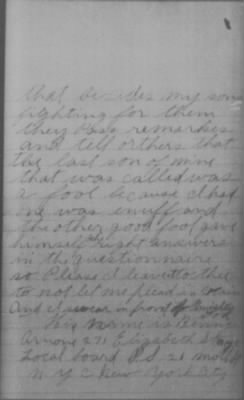 that besides my sons
fighting for them
they Pass remarkes
and tell orthers that
the last son of mine
that was called was
a fool because I had
was enuff and
the other good fool gave
himself right answers
in the questionnaire
so Please I leave to the
to not let me
And I swear in front of
his name is
Arnone 271 Elizabeth St
Local board 21
N.Y. New York City